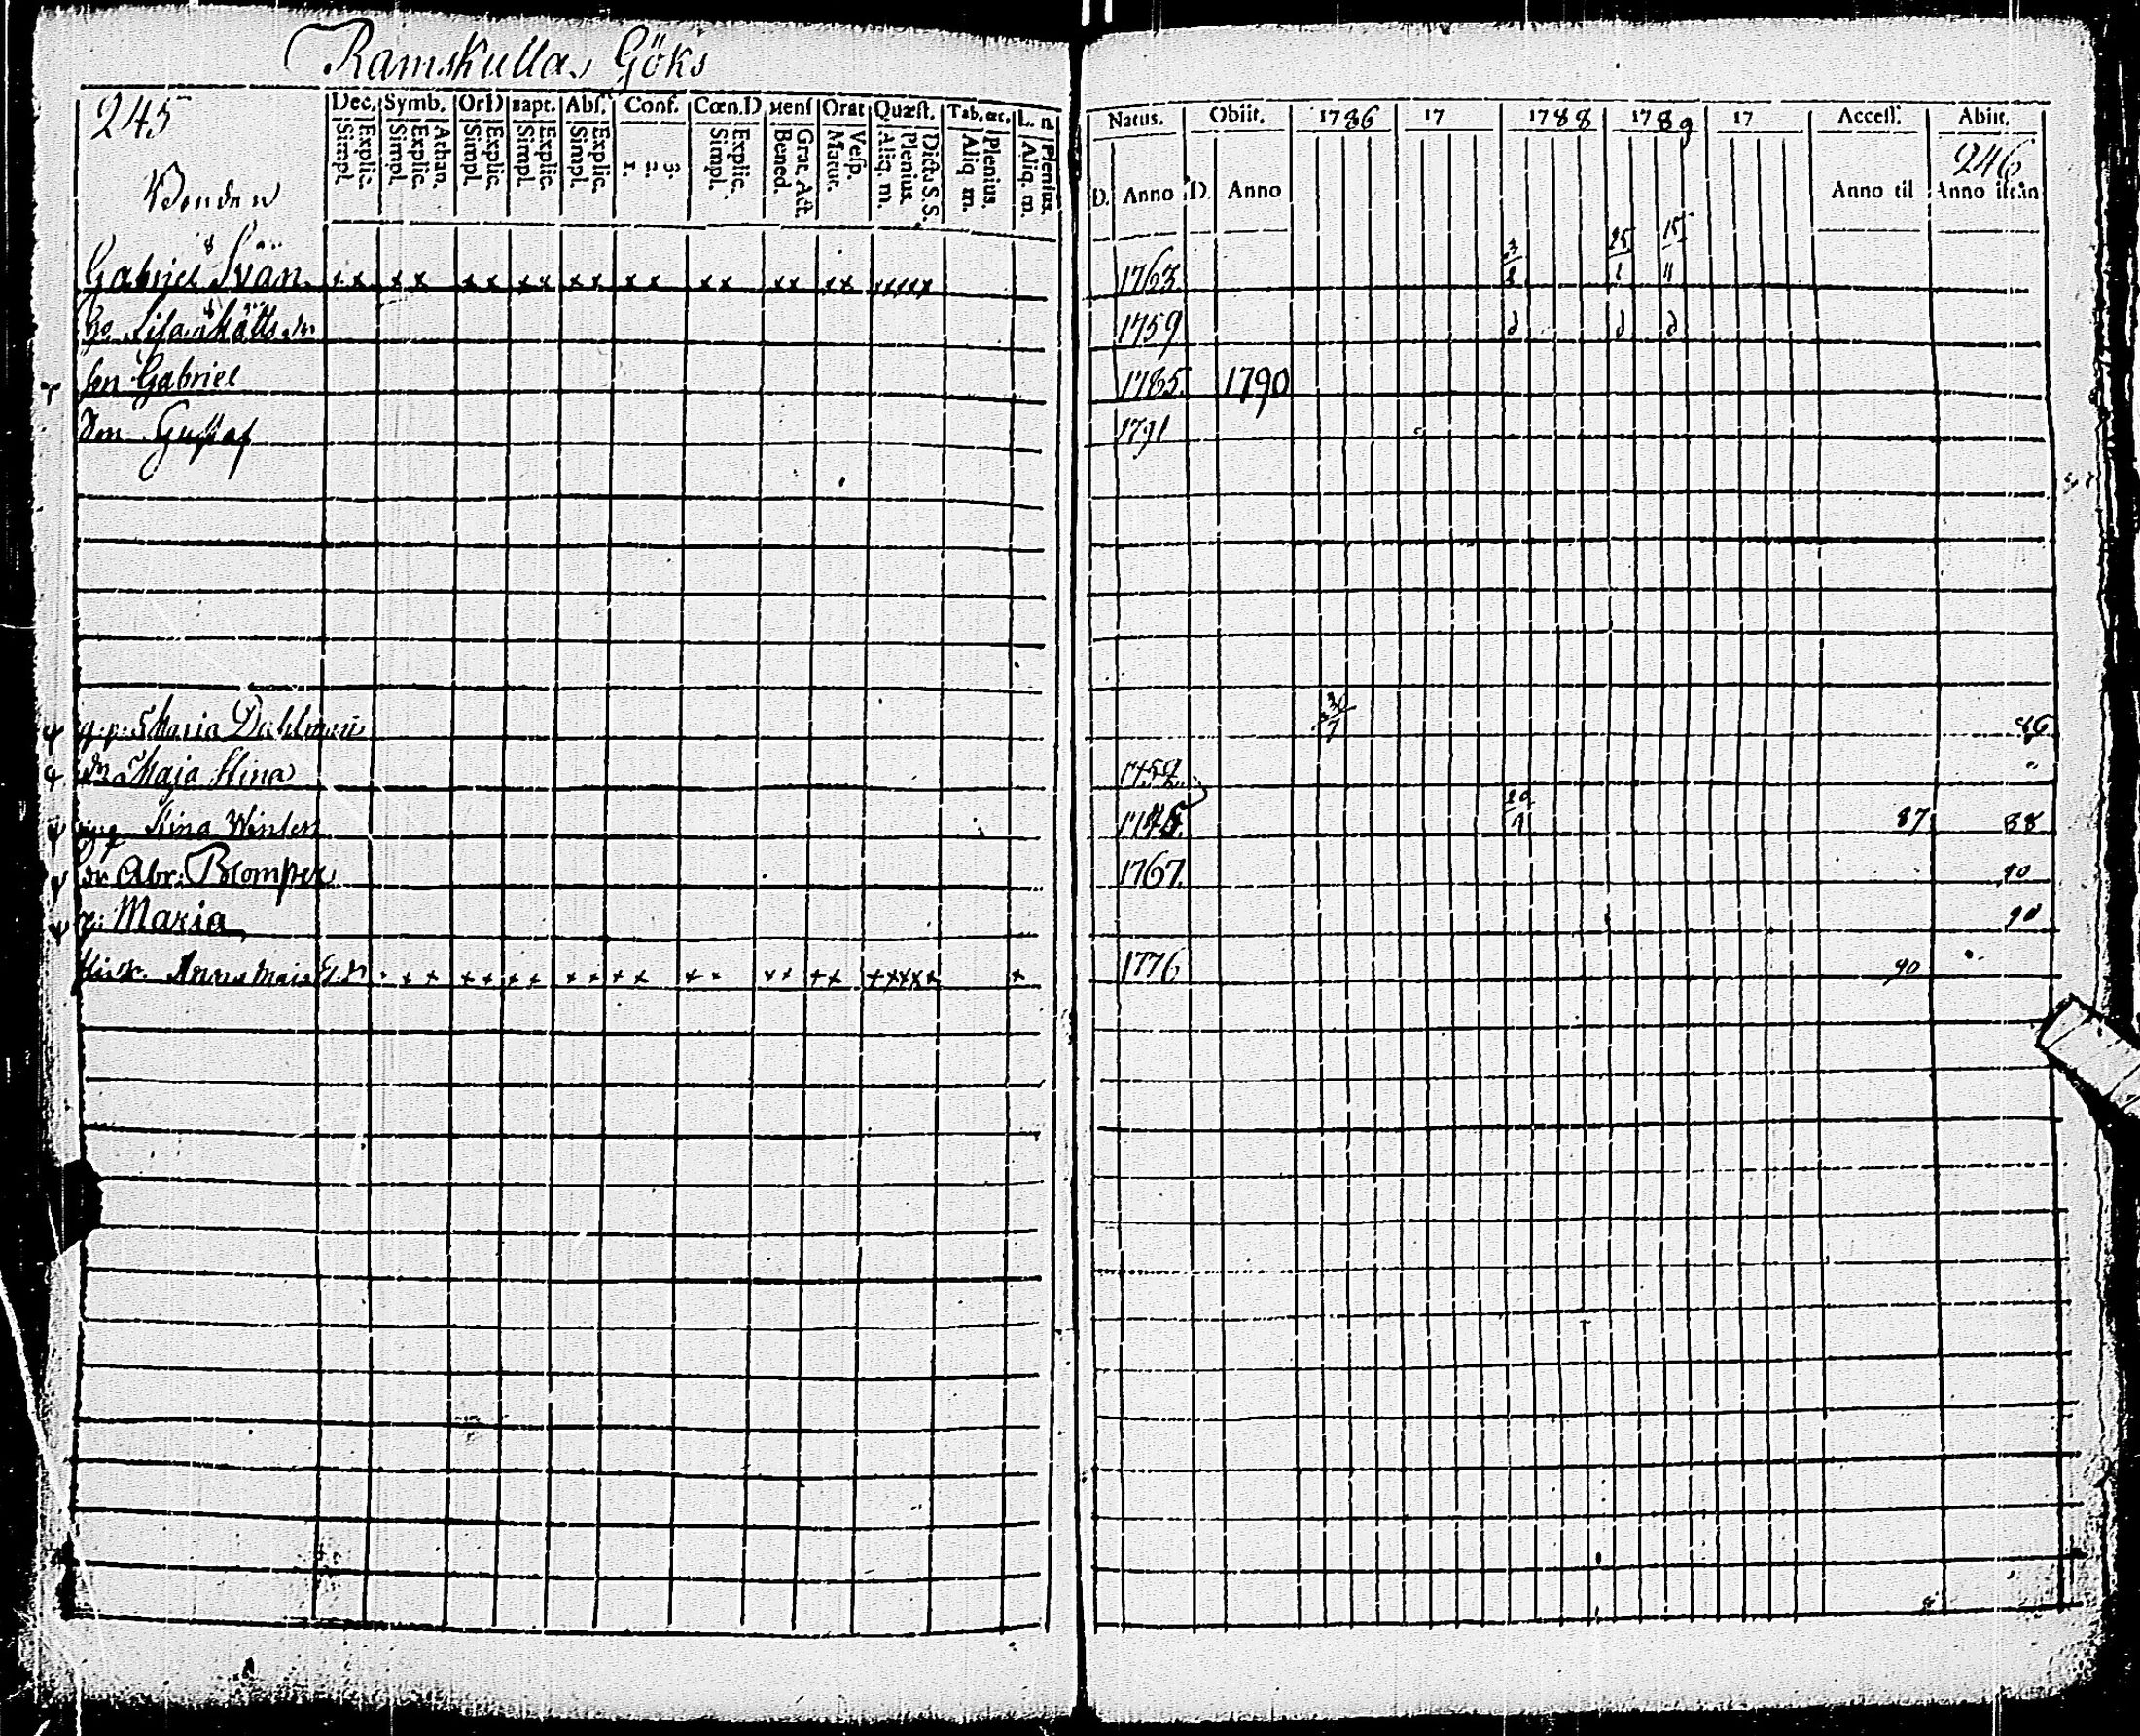 Ramskulla, Göks
245
Dec. Symb. Or D Bapt. Abs. Conf. Cœn.D Mens Orat Quæst. Tab. œc. L. n.
Explic. Simpl. Athan. Explic. Simpl. Explic. Simpl. Explic. Simpl. Explic. Simpl. 3. 2. 1. Explic. Simpl. Grat. Act. Bened. Vesp. Matut. Dicta S.S. Plenius. Aliq. m. Plenius. Aliq. m. Plenius. Aliq. m.
Natus. Obiit. 1786 17 1788 1789 17 Access. Abiit.
246
D. Anno D. Anno Anno til Anno ifrån
Gabriel Svän x x x x x x x x x x x x x x x x x x x x x x x 1763 3/2 25/1 15/11
Lisa 1759 d d d
son Gabriel 1785. 1790
Son Gustaf 1791
g.p. Maria Dahlman 30/7 86
Maja Stina
Stina Winsten 20/1 87 88
dr Abr: Blomster 1767. 90
p: Maria 90
Anna Maja x x x x x x x x x x x x x x x x x x x x x x 1776 90